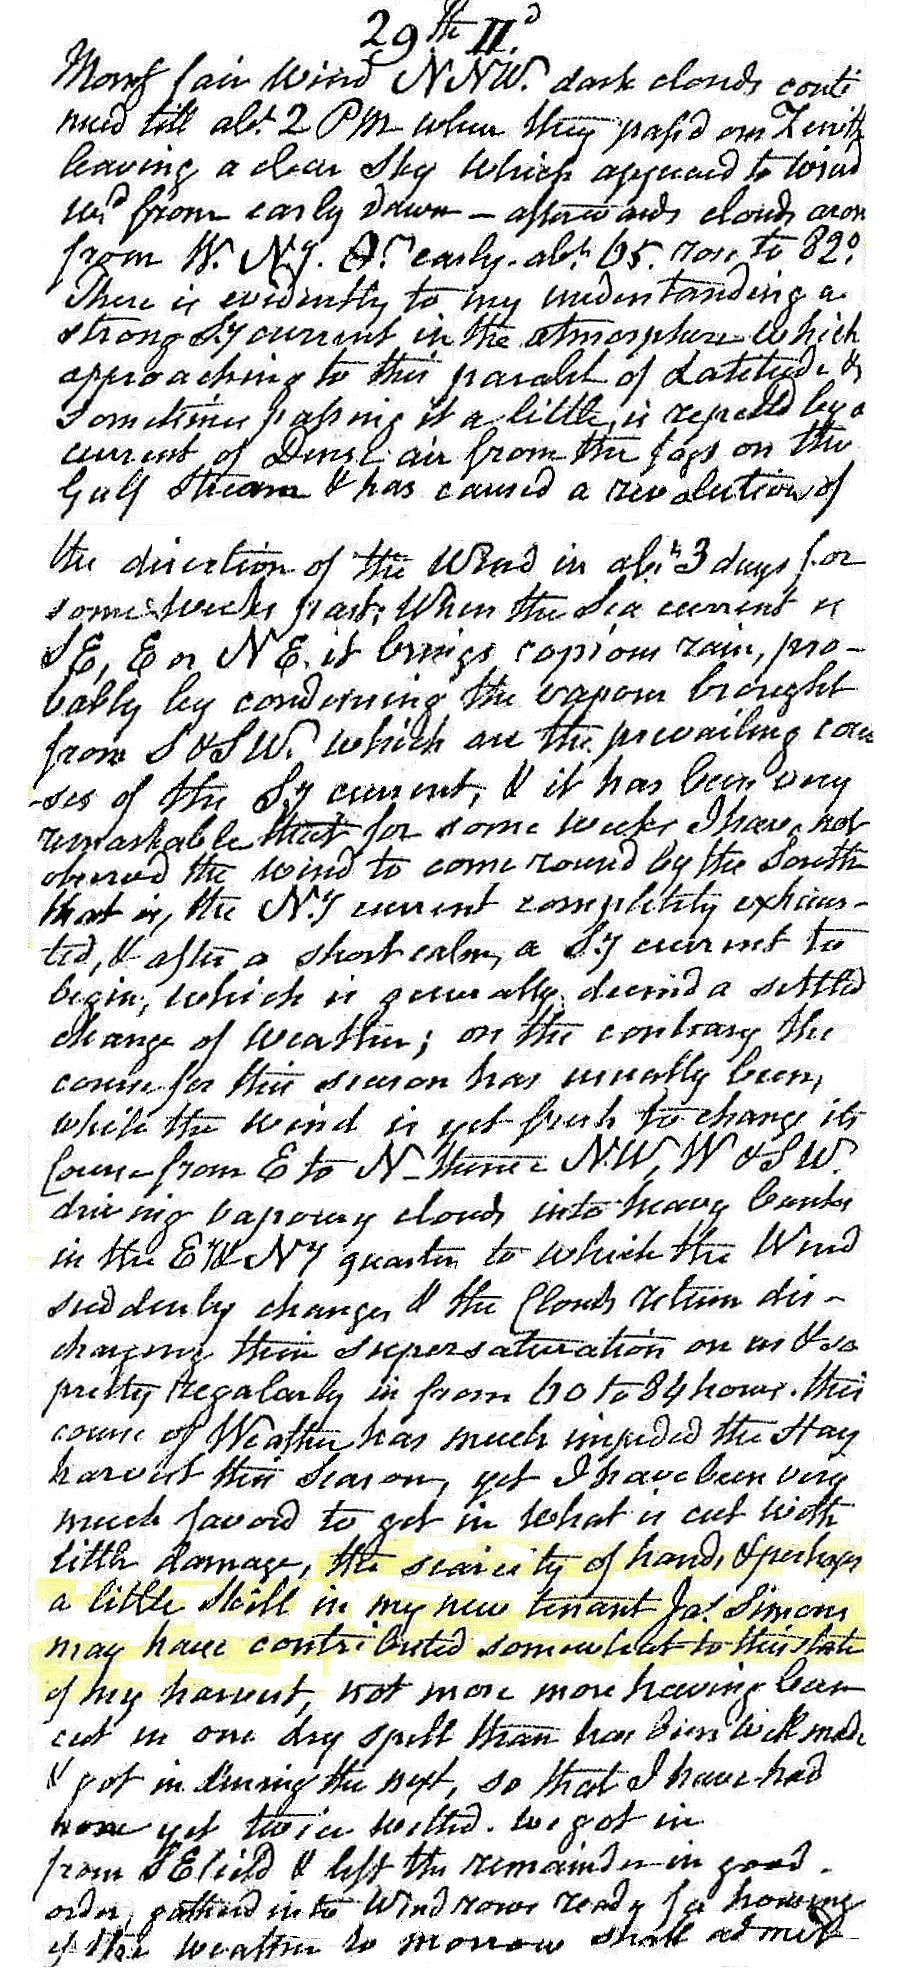 29th II.d
Morng fair Wind NNW. dark clouds conti
nued till abt. 2 PM when they pass'd our Zenith
leaving a clear Sky which appeared to Wind
wd from early Dawn – afterwards clouds arose
from W. Ny. early. abt. 65. rose to 82°.
There is evidently to my understanding a
strong Sy current in the atmosphere which
approaching to this paralel of Latitude &
sometimes passing it a little, is repelld by a
current of Dense air from the fogs on the
Gulf Stream & has caused a revolution of
the direction of the Wind in abt. 3 days for
some weeks past; When the Sea current is
SE, E or NE. it brings copious rain, pro-
bably by condensing the vapour brought
from S & SW. which are the prevailing cour
-ses of the Sy current, & it has been very
remarkable that for some weeks I have not
observed the wind to come round by the South
that is, the Ny current completely exhaus-
ted, & after a short calm, a Sy current to
begin, which is generally deemd a settled
change of weather; on the contrary the
course for this season has usually been,
while the wind is yet fresh to change its
Course from E to N – thence NW, W & SW.
driving vapoury clouds into heavy banks
in the Ey & Ny quarter to which the Wind
suddenly changes & the Clouds return dis-
charging their supersaturation on us & so
pretty regularly in from 60 to 84 hours. this
course of Weather has much impeded the Hay
harvest this season, yet I have been very
much favord to get in what is cut with
little damage, the scarcity of hands & perhaps
a little skill in my new tenant Jas. Simons
may have contributed somewhat to this state
of my harvest, not more more having been
cut in one dry spell than has been well made
& got in during the next, so that I have had
none yet twice wetted. we got in
from SE field & left the remainder in good
order, gatherd into Wind rows ready for housing
if the weather to morrow shall admit